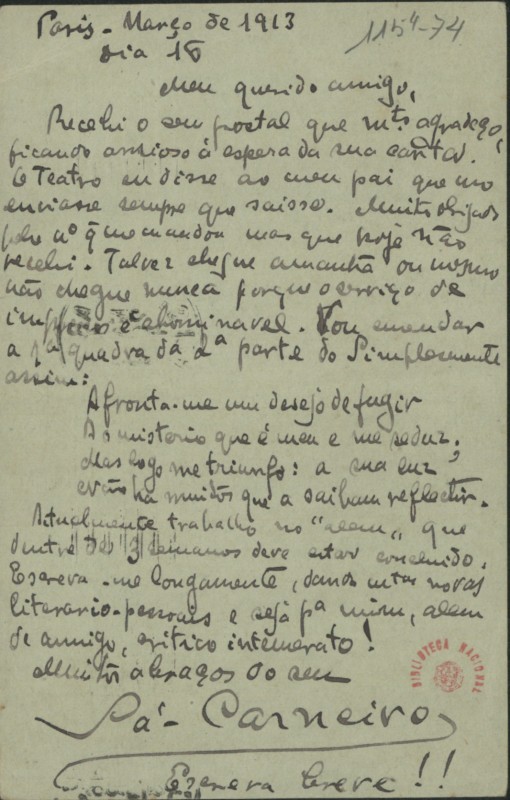 Paris - Março de 1913
Dia 10
115⁴-74
Meu querido amigo,
Recebi o seu postal que mtº agradeço,
ficando ansioso á espera da sua carta.
O Teatro eu disse ao meu pai que mo
enviasse sempre que saisse. Muito obrigado
pelo nº q̃ me mandou mas que hoje não
recebi. Talvez chegue amanhã ou mesmo
não chegue nunca porque o serviço de
impressos é abominavel. Vou emendar
a 1ª quadra da 2ª parte do Simplesmente
assim:
Afronta-me um desejo de fugir
Ao misterio que é meu e me seduz.
Mas logo me triunfo: a sua luz
Não ha muitos que a saibam reflectir.
Actualmente trabalho no "Alem" que
dentre de 3 semanas deve estar concluido.
Escreva-me longamente, dando mtas novas
literario-pessoais e seja pª mim, alem
de amigo, critico intemerato!
Muitos abraços do seu
Sá-Carneiro
Escreva breve!!
BIBLIOTECA NACIONAL